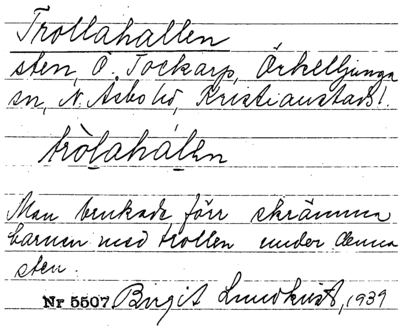 Trollahallen
sten, Ö. Tockarp, Örkelljunga
sn, N. Åsbo hd, Kristianstads l.
tròlahálen
Man brukade förr skrämma
barnen med trollen under denna
sten.
Nr 5507 Birgit Lundkvist, 1939